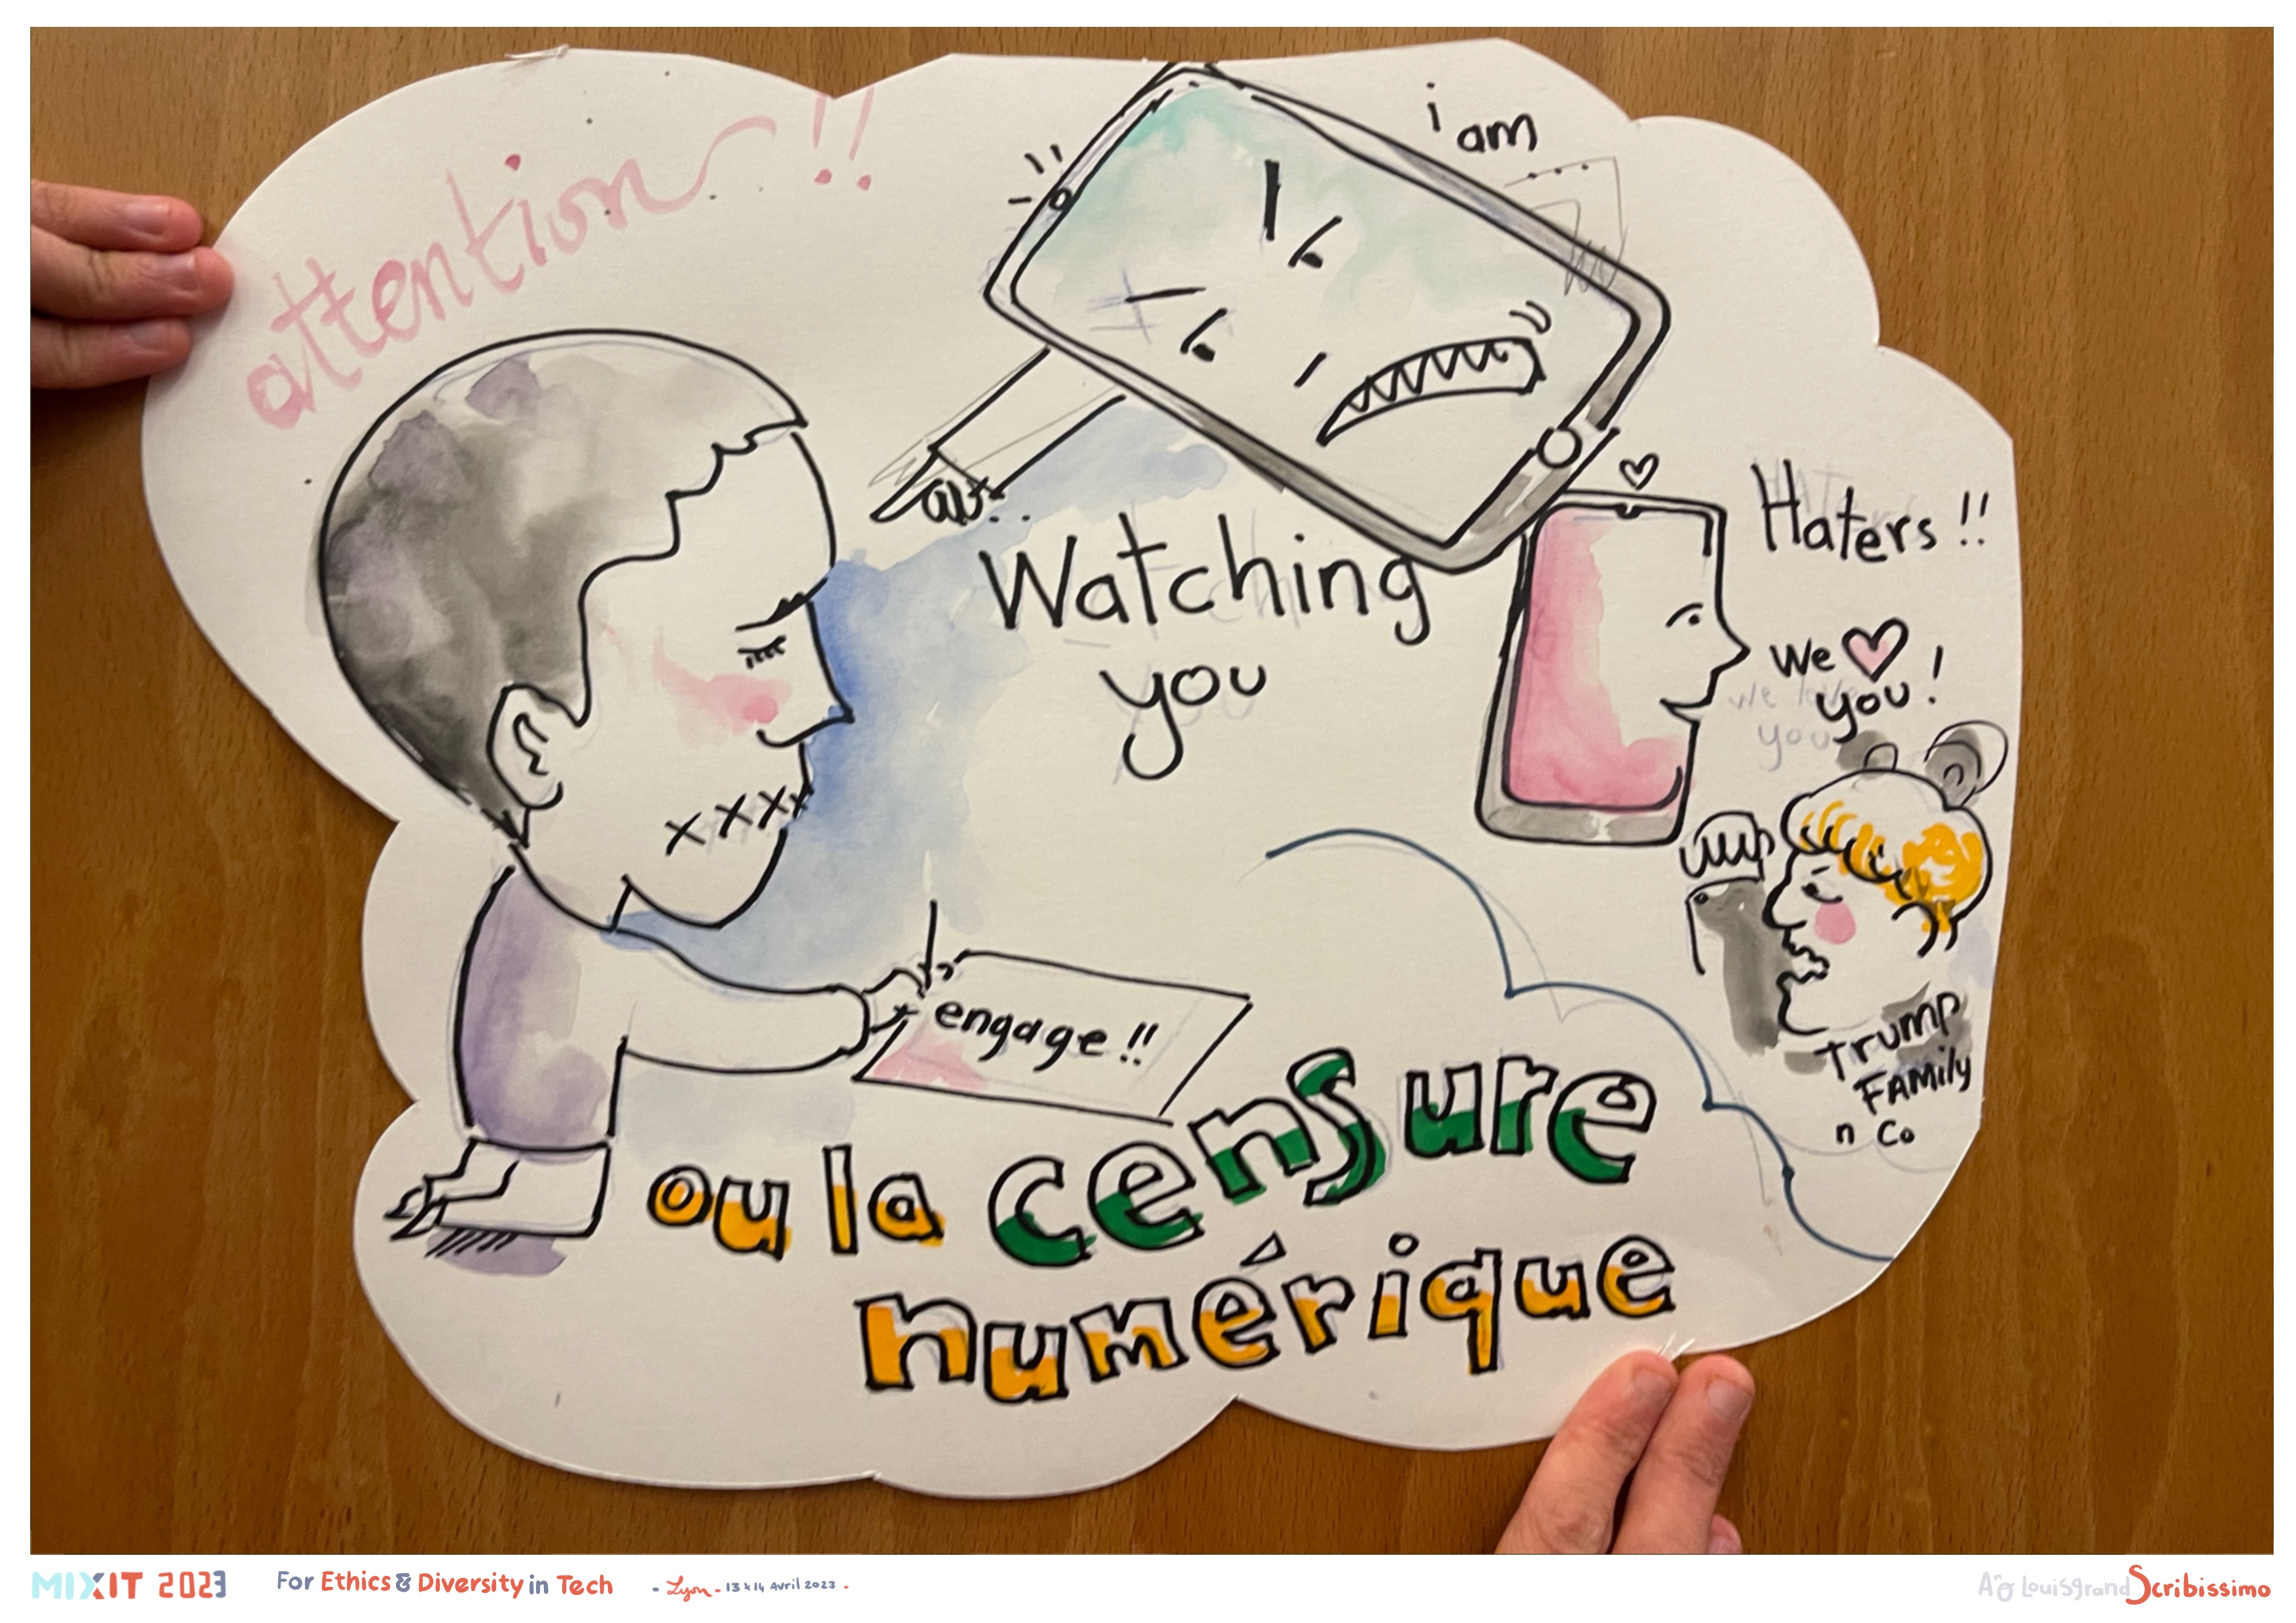 attention !!
i am
Watching
you
Haters !!
We ♥
you !
we love
you
engage !!
Trump
FAMily
n Co
ou la censure
numérique
MIXIT 2023
For Ethics & Diversity in Tech
- Lyon - 13 & 14 Avril 2023 -
Louisgrand Scribissimo